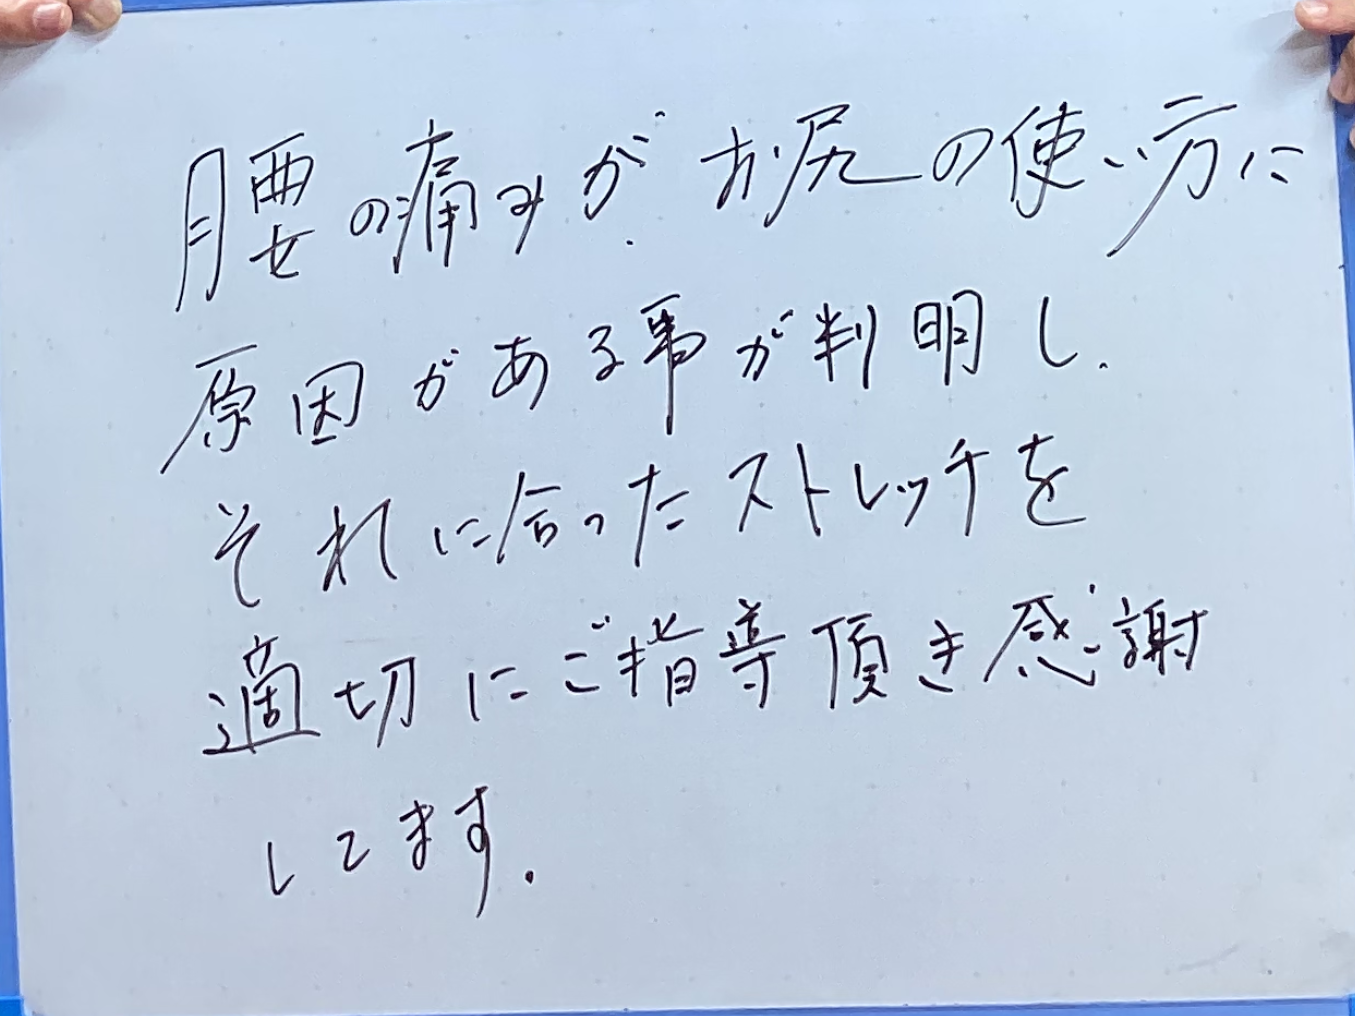 腰の痛みが、お尻の使い方に
原因がある事が判明し、
それに合ったストレッチを
適切にご指導頂き感謝
してます.